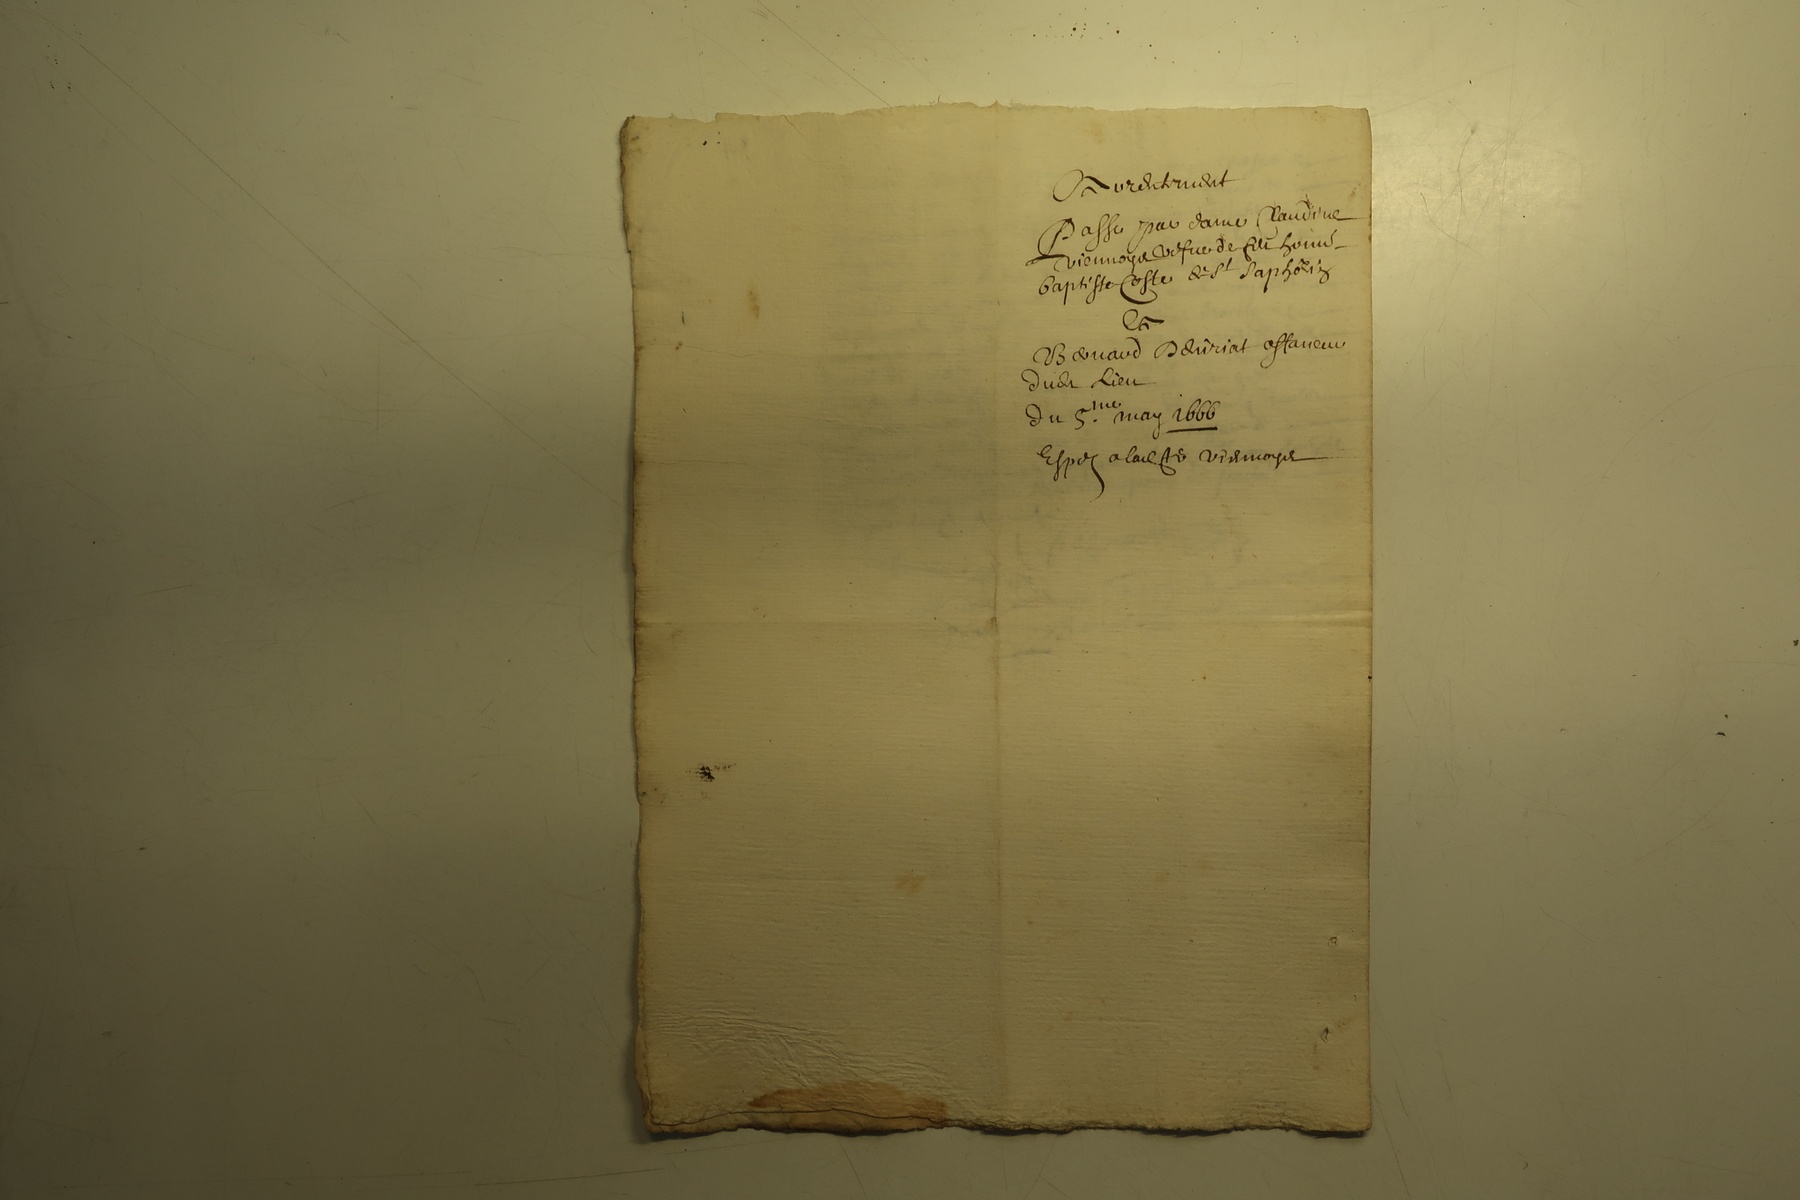 Arrentement
Passé par dame Claudine
viennoys vefve de feu honn-
baptiste Coste de St Saphorin
Et
Bernard Deuriat
dudt Lieu
du 5.me may 1666
Espé a lade viennoys